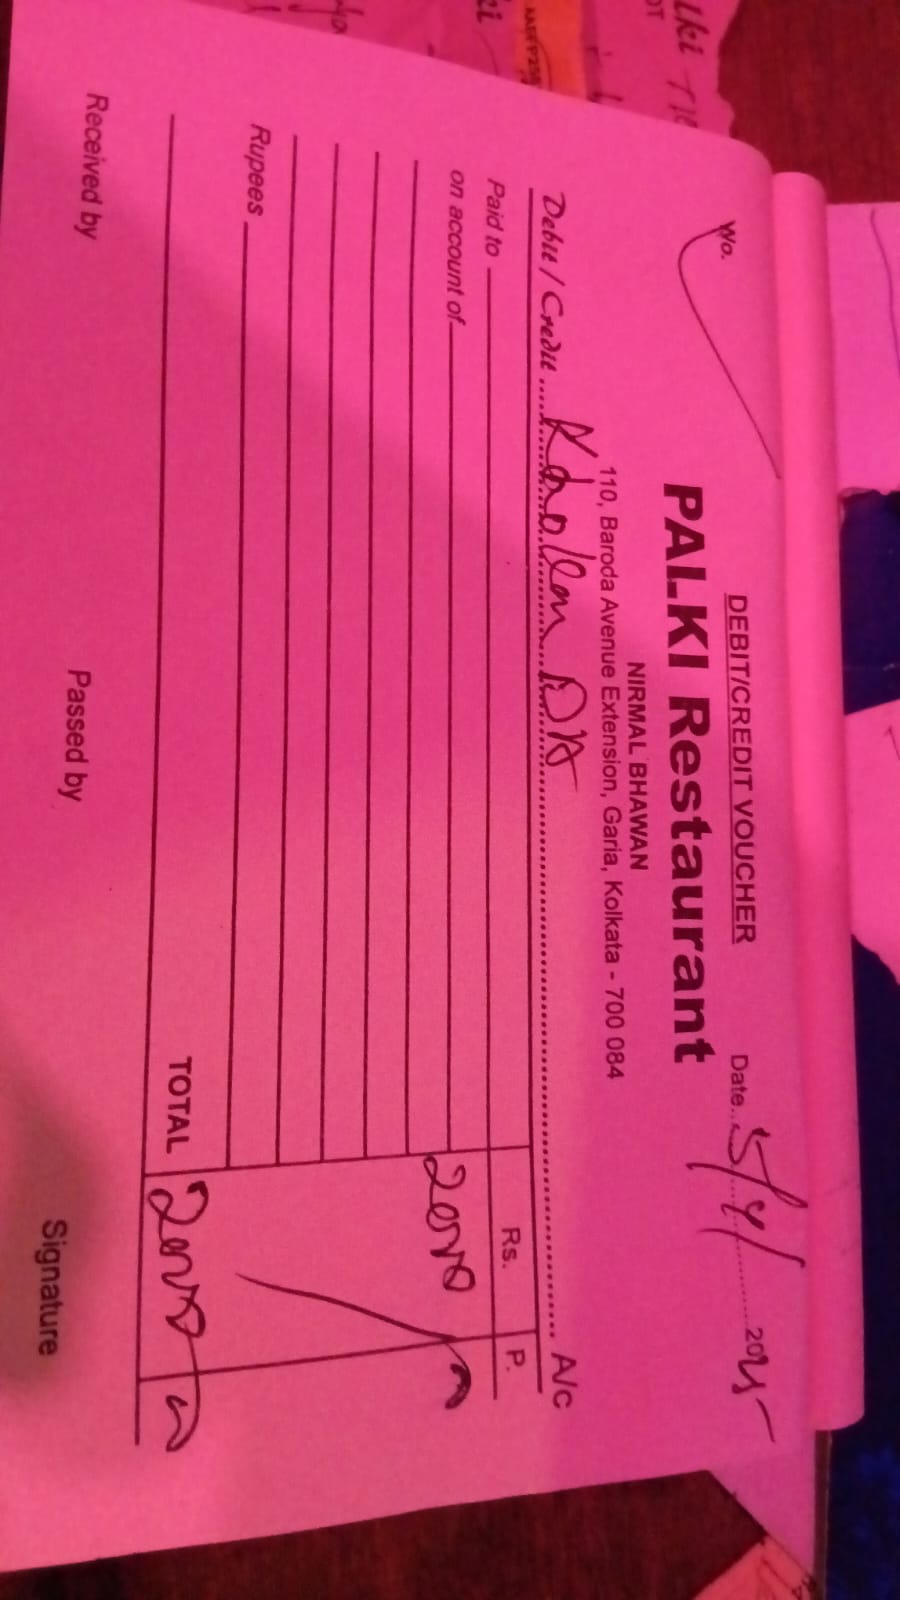 DEBIT/CREDIT VOUCHER
No. Date 5/4/2025
PALKI Restaurant
NIRMAL BHAWAN
110, Baroda Avenue Extension, Garia, Kolkata - 700 084
Debit / Credit A/c
Paid to Rs. P.
on account of
Rupees
TOTAL
Received by Passed by Signature